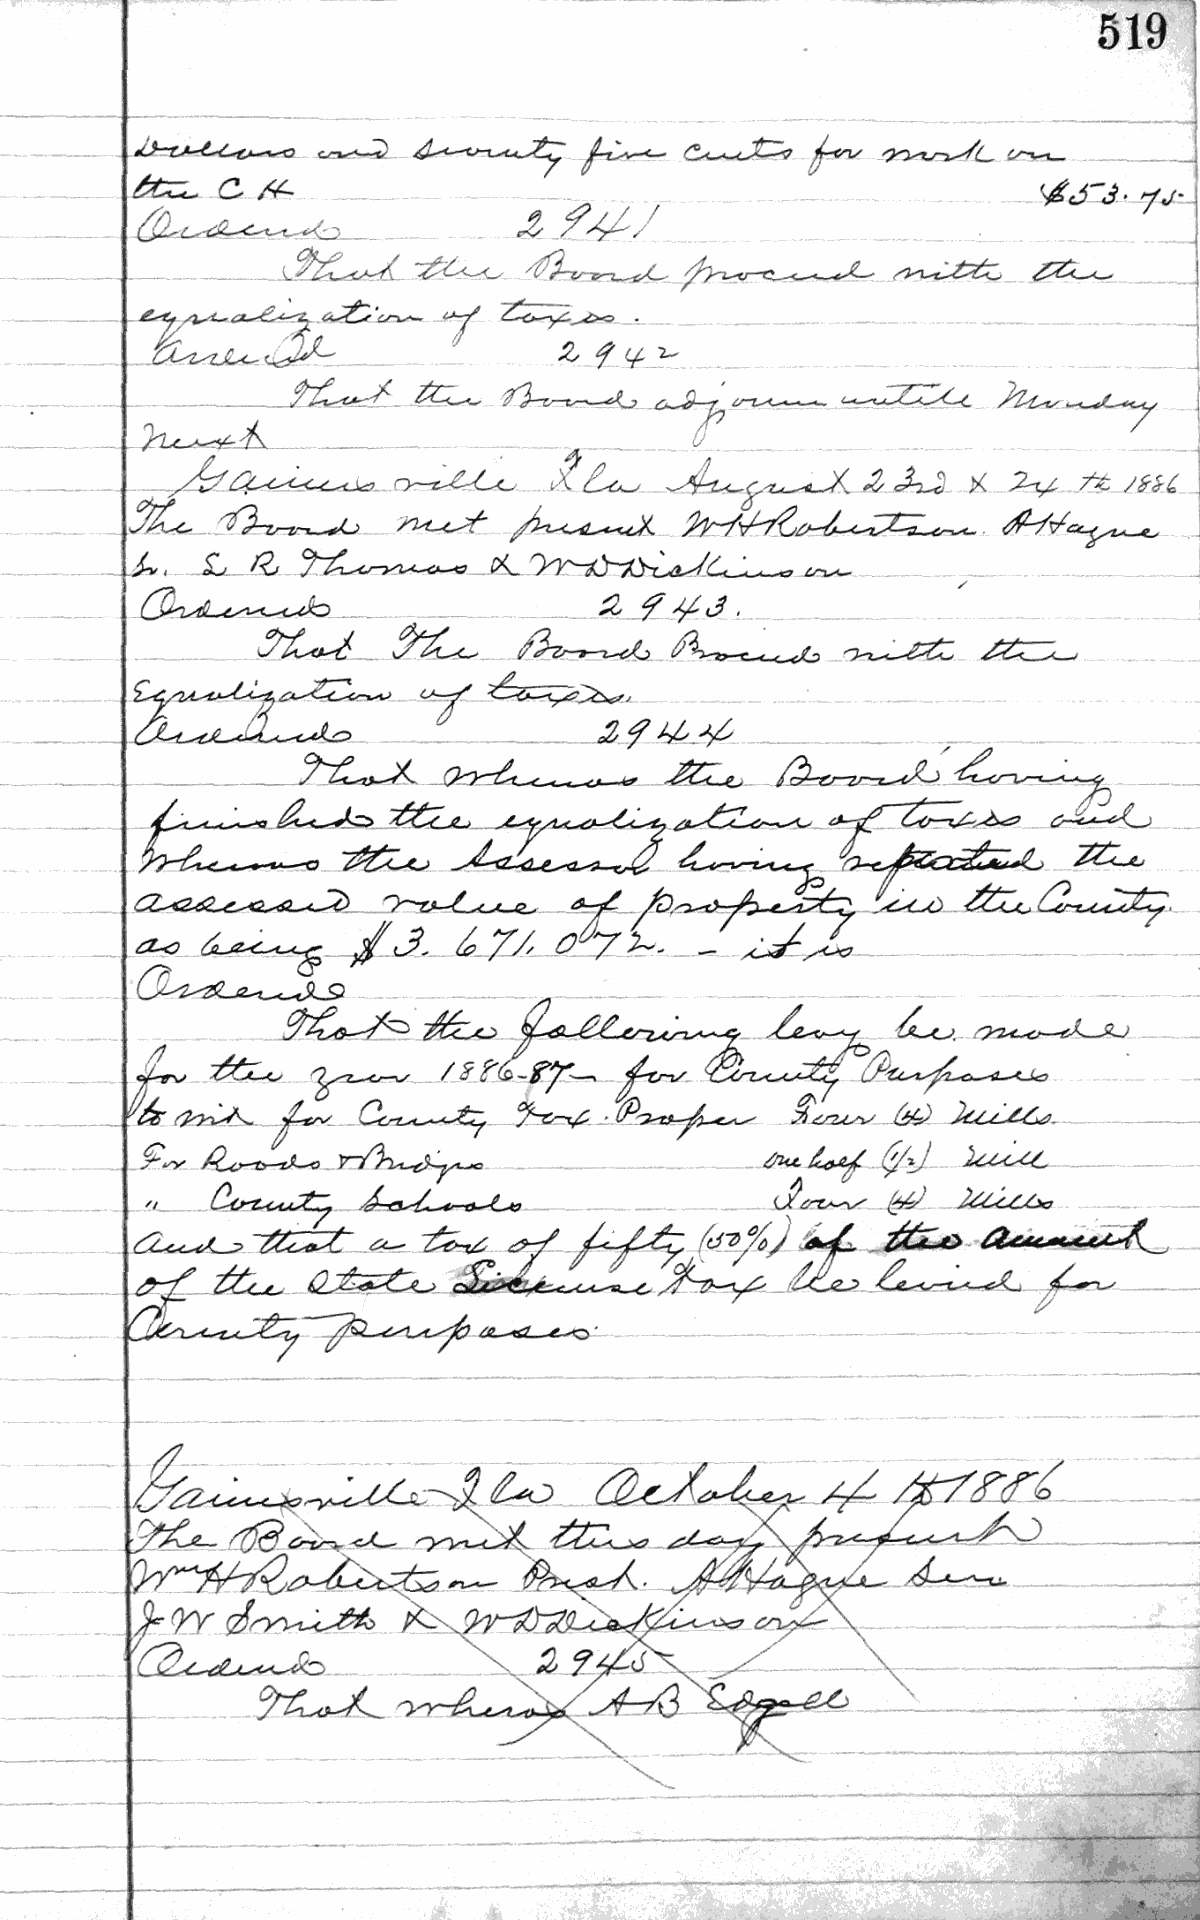 519
Dollars and Seventy five cents for work on
the C H $53.75
Ordered 2941
That the Board proceed with the
equalization of taxes.
Ordered 2942
That the Board adjourn untill Monday
Next
Gainesville Fla August 23rd & 24th 1886
The Board met present W H Robertson. A Hague
Sr. L R Thomas & W D Dickinson
Ordered 2943.
That The Board Proceed with the
Equalization of taxes.
Ordered 2944
That whereas the Board having
finished the equalization of taxes and
Whereas the Assessor having reported the
assessed value of property in the County
as being $3.671.072. - it is
Ordered
That the following levy be made
for the year 1886-87- for County Purposes
to wit for County Tax Proper Four (4) Mills
For Roads & Bridges one half (1/2) Mill
" County Schools Four (4) Mills
And that a tax of fifty (50%) of the amount
of the State License Tax be levied for
County purposes
Gainesville Fla October 4th 1886
The Board met this day present
Wm H Robertson Prest. A Hague Senr
J W Smith & W D Dickinson
Ordered 2945
That whereas A B